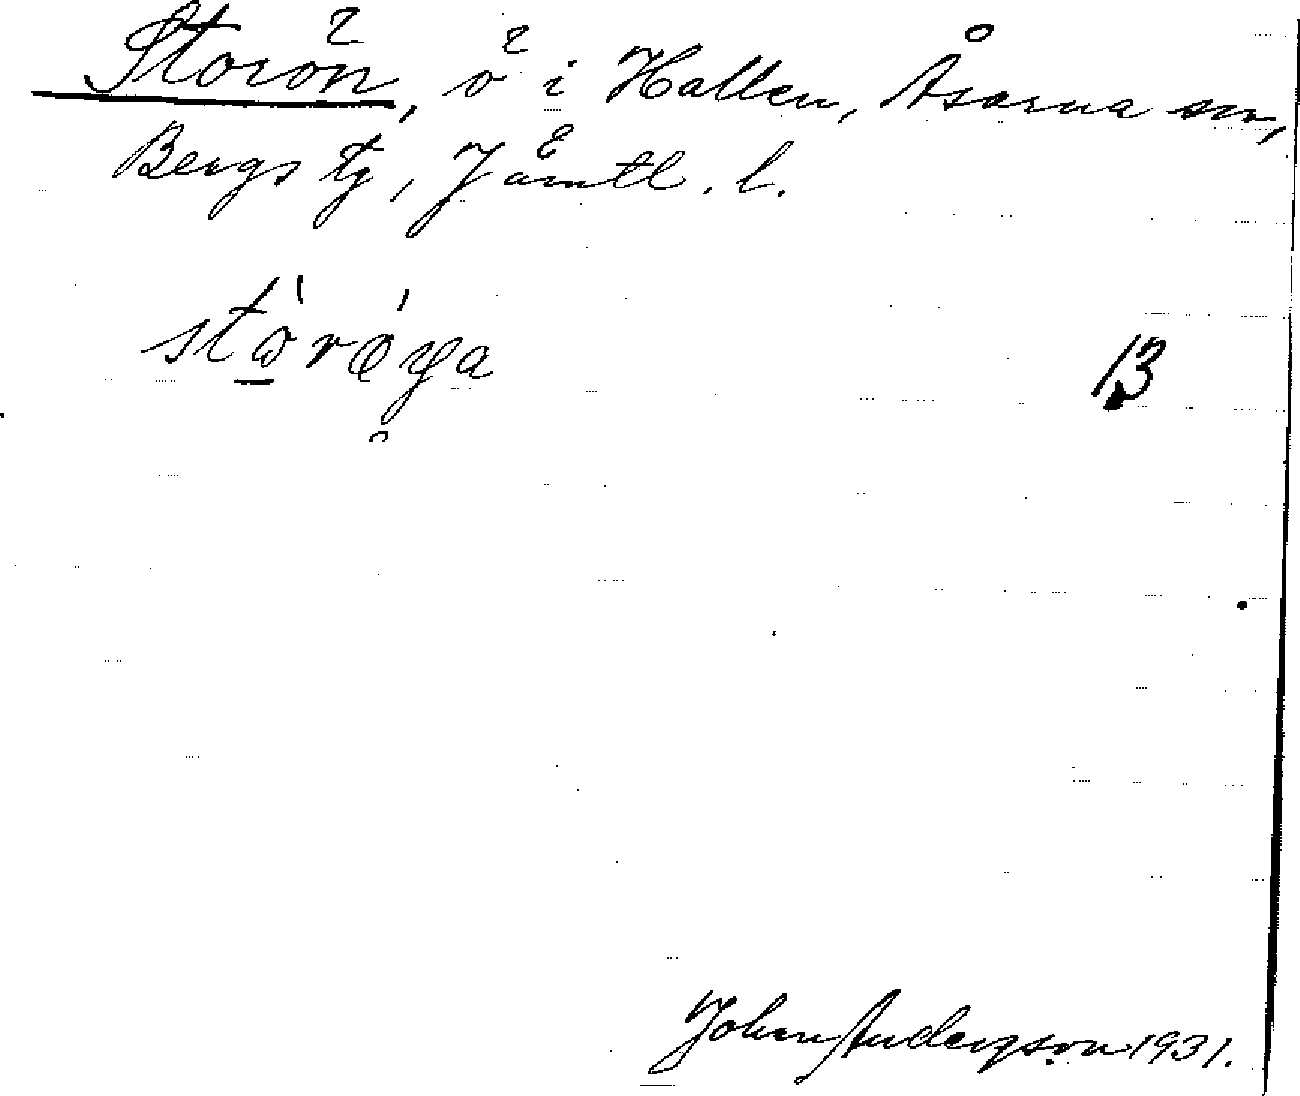 Storön, ö i Hallen, Åsarna sn,
Bergs tg, Jämtl. l.
störøya
13
Johan Andersson 1931.